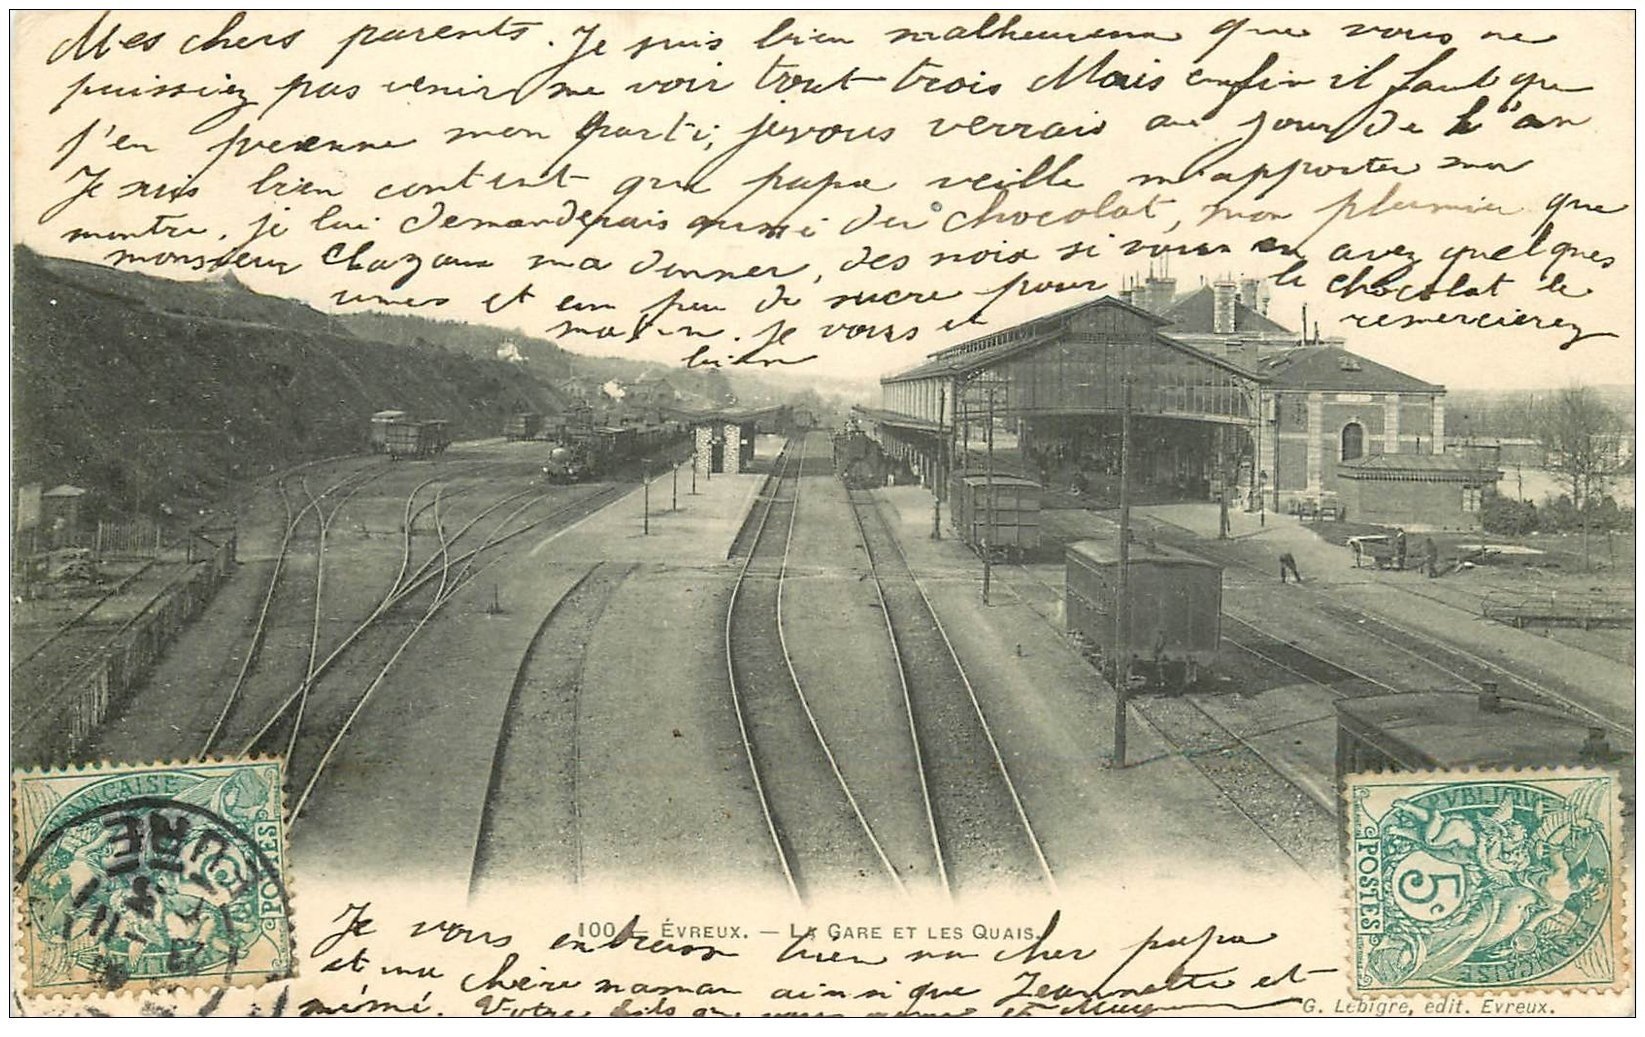 Mes chers parents. Je suis bien malheureux que vous ne
puissiez pas venir me voir tout trois Mais enfin il faut que
j'en prenne mon parti, je vous verrai au jour de l'an
Je suis bien content que papa veille m'apporter ma
montre, je lui demanderais aussi du chocolat, mon plumier que
monsieur Chazaux ma donner, des noix si vous en avez quelques
unes et un peu de sucre pour le chocolat le
matin. Je vous en remercierez
bien
100 — ÉVREUX. — LA GARE ET LES QUAIS.
Je vous embrasse bien mon cher papa
et ma chère maman ainsi que Jeannette et
mémé. Votre fils qui vous aime
G. Lebigre, edit. Evreux.
FRANÇAISE
POSTES
EURE
PUBLIQUE
POSTES
5c
FRANÇAISE